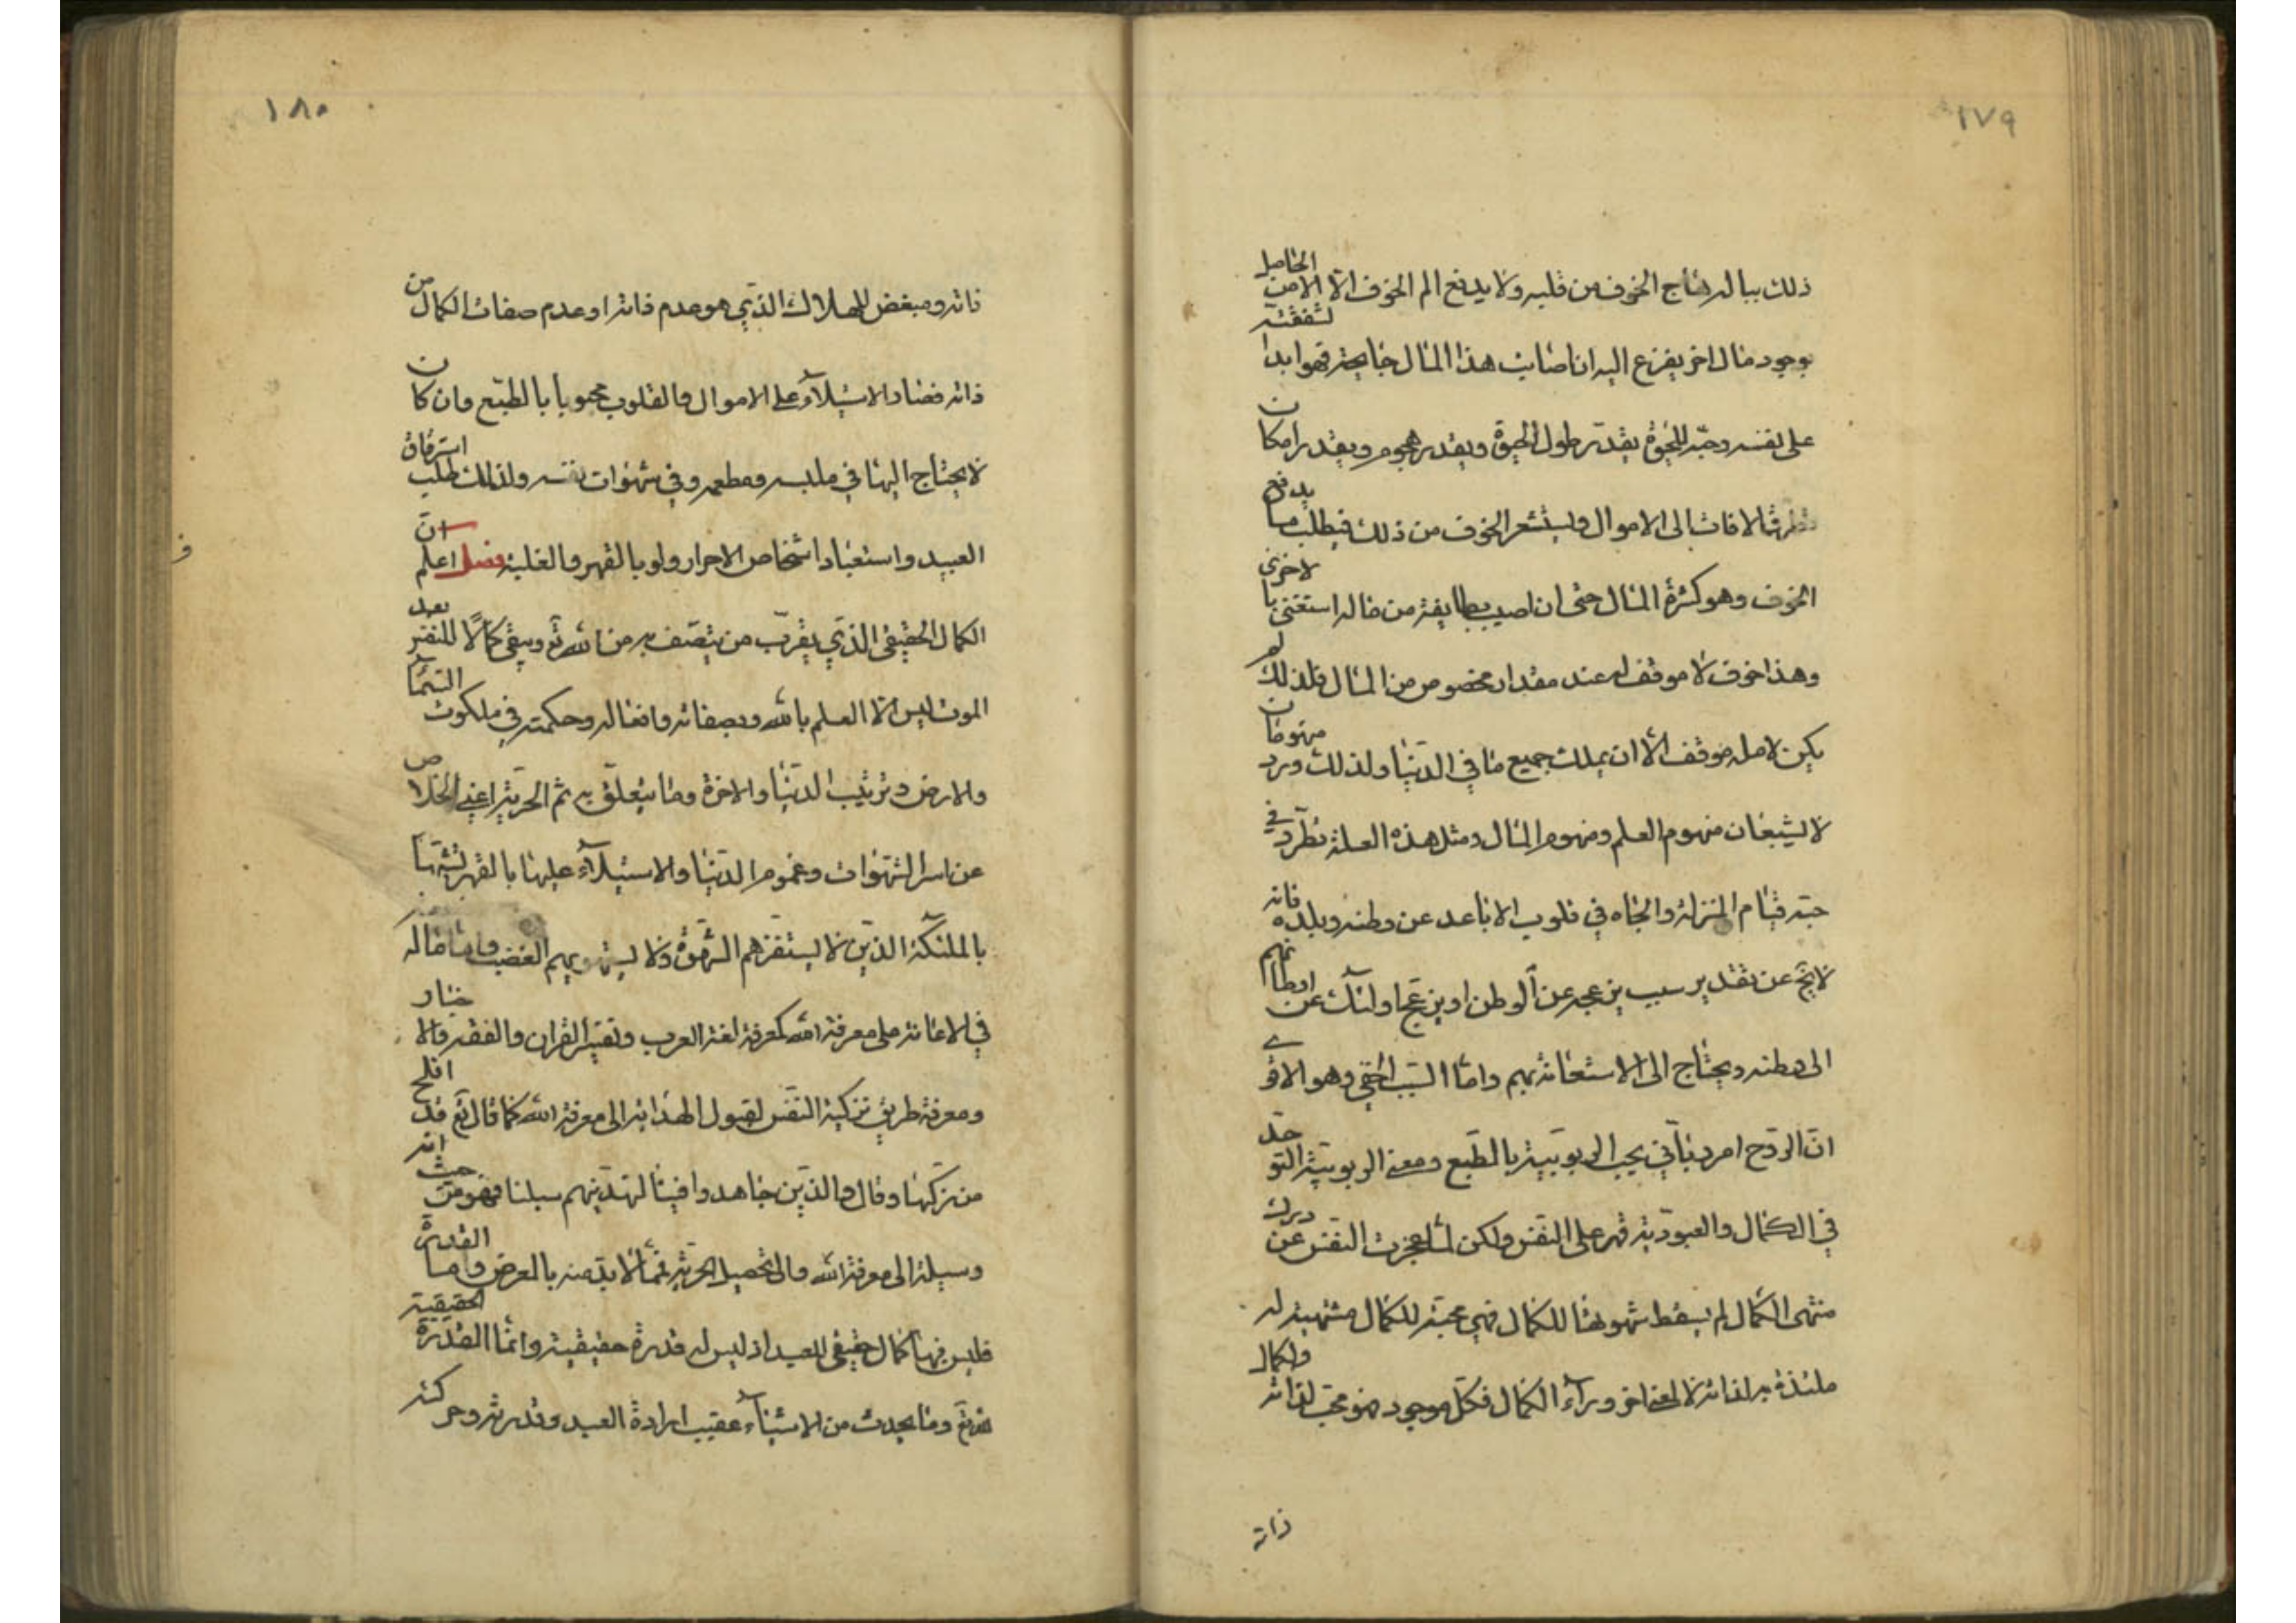 ١٧٩
ذلك بباله هاج الخوف من قلبه ولا يدفع الم الخوف الا الامن الحاصل
بوجود مال اخر يفزع اليه ان اصابت هذا المال جايحة فهو ابدا لشفقته
على نفسه وحبه للحيوة يقدر طول الحيوة ويقدر هجوم ويقدر امكان
تطرق الافات الى الاموال ويستشعر الخوف من ذلك فيطلب ما يدفع
الخوف وهو كثرة المال حتى ان اصيب بطايفة من ماله استغنى بالاخرى
وهذا خوف لا موقف له عند مقدار مخصوص من المال فلذلك لم
يكن لامله موقف الا ان يملك جميع ما في الدنيا ولذلك ورد منهومان
لا يشبعان منهوم العلم ومنهوم المال ومثل هذه العلة تطرد في
حبه قيام المنزلة والجاه في قلوب الاباعد عن وطنه وبلده فانه
لا يخ عن تقدير سبب يزعجه عن الوطن او يزعج اولئك عن اوطانهم
الى وطنه ويحتاج الى الاستعانة بهم واما السبب الخفي وهو الاقوى
ان الروح امر رباني يحب الربوبية بالطبع ومعنى الربوبية التوحد
في الكمال والعبودية قهر على النفس ولكن لما عجزت النفس عن درك
منتهى الكمال لم يسقط شهوتها للكمال فهي محبة للكمال مشتهية له
ملتذة به لذاته لا لمعنى اخر وراء الكمال فكل موجود فهو محب لذاته ولكمال
ذاته
١٨٠
ذاته ومبغض للهلاك الذي هو عدم ذاته او عدم صفات الكمال من
ذاته فصار الاستيلاء على الاموال والقلوب محبوبا بالطبع وان كان
لا يحتاج اليها في ملبسه ومطعمه وفي شهوات نفسه ولذلك طلب استرقاق
العبيد واستعباد اشخاص الاحرار ولو بالقهر والغلبة فصل اعلم ان
الكمال الحقيقي الذي يقرب من يتصف به من الله تع ويبقى كمالا للنفس بعد
الموت ليس الا العلم بالله وبصفاته وافعاله وحكمته في ملكوت السماء
والارض وترتيب الدنيا والاخرة وما يتعلق به ثم الحرية اعني الخلاص
عن اسر الشهوات وغموم الدنيا والاستيلاء عليها بالقهر تشبها
بالملئكة الذين لا يستفزهم الشهوة ولا يستهويهم الغضب واما ماله
في الاعانة على معرفة الله كمعرفة لغة العرب وتفسير القران والفقه والاخبار
ومعرفة طريق تزكية النفس لقبول الهداية الى معرفة الله كما قال تع قد افلح
من زكيها وقال والذين جاهدوا فينا لنهدينهم سبلنا فهو من حيث انه
وسيلة الى معرفة الله والى تحصيل الحرية فمما لا بد منه بالعرض واما القدرة
فليس فيها كمال حقيقي للعبد اذ ليس له قدرة حقيقية وانما القدرة الحقيقية
لله تع وما يحدث من الاشياء عقيب ارادة العبد وقدرته وحركته